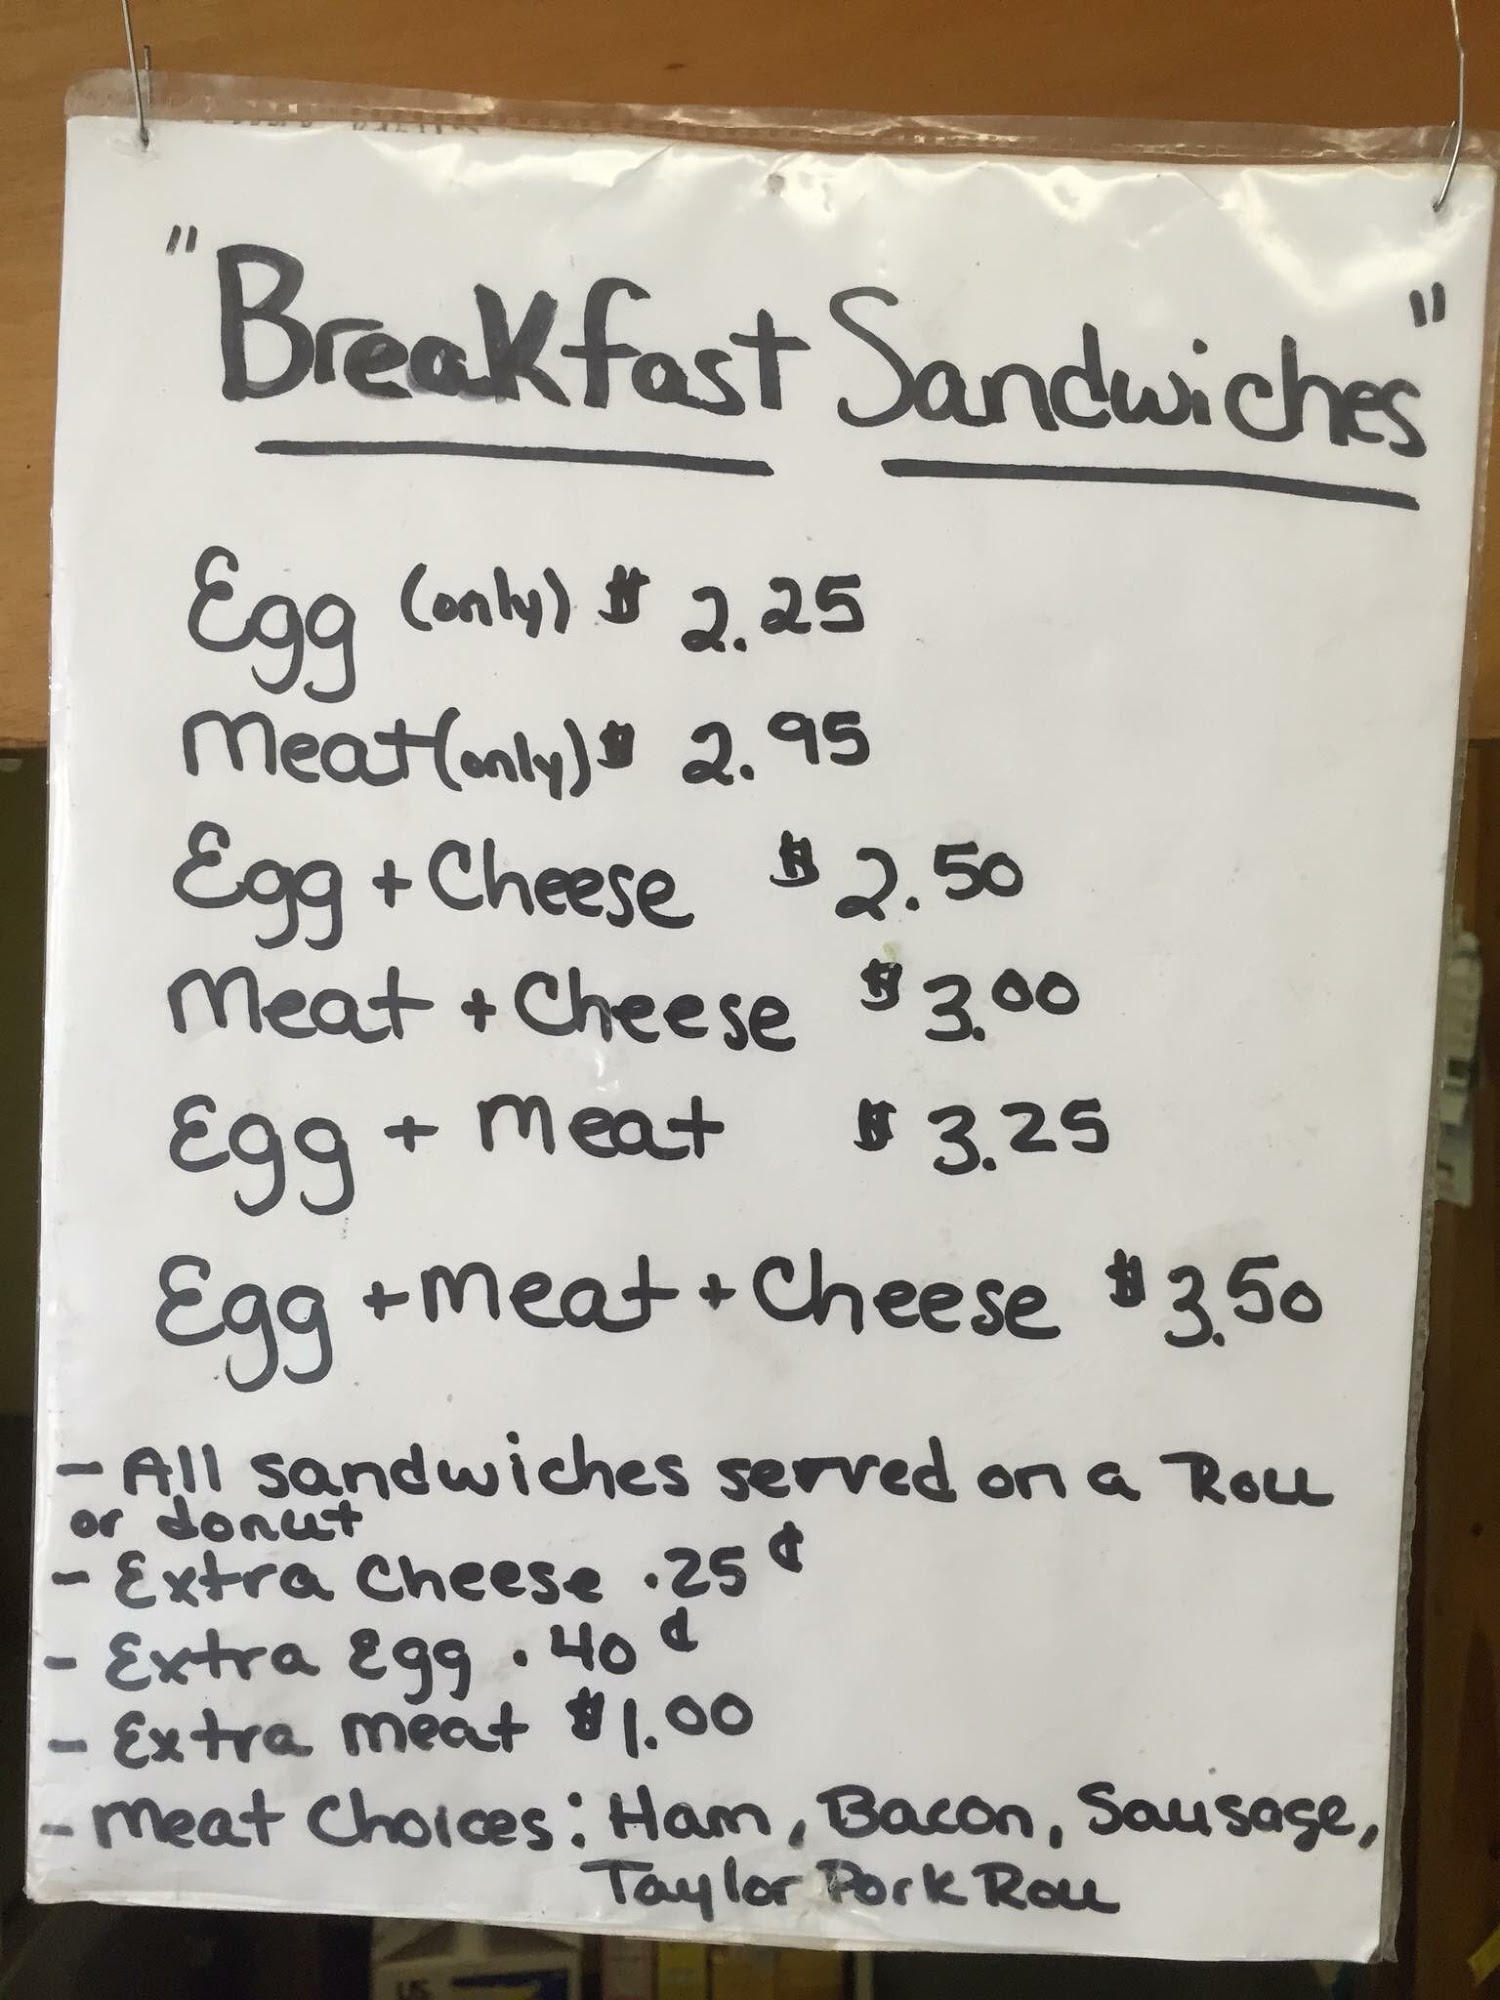 "Breakfast Sandwiches"
Egg (only) $ 2.25
Meat (only) $ 2.95
Egg + Cheese $ 2.50
Meat + Cheese $ 3.00
Egg + Meat $ 3.25
Egg + Meat + Cheese $ 3.50
- All sandwiches served on a Roll
or donut
- Extra Cheese .25¢
- Extra Egg .40¢
- Extra Meat $1.00
- Meat Choices: Ham, Bacon, Sausage,
Taylor Pork Roll
US